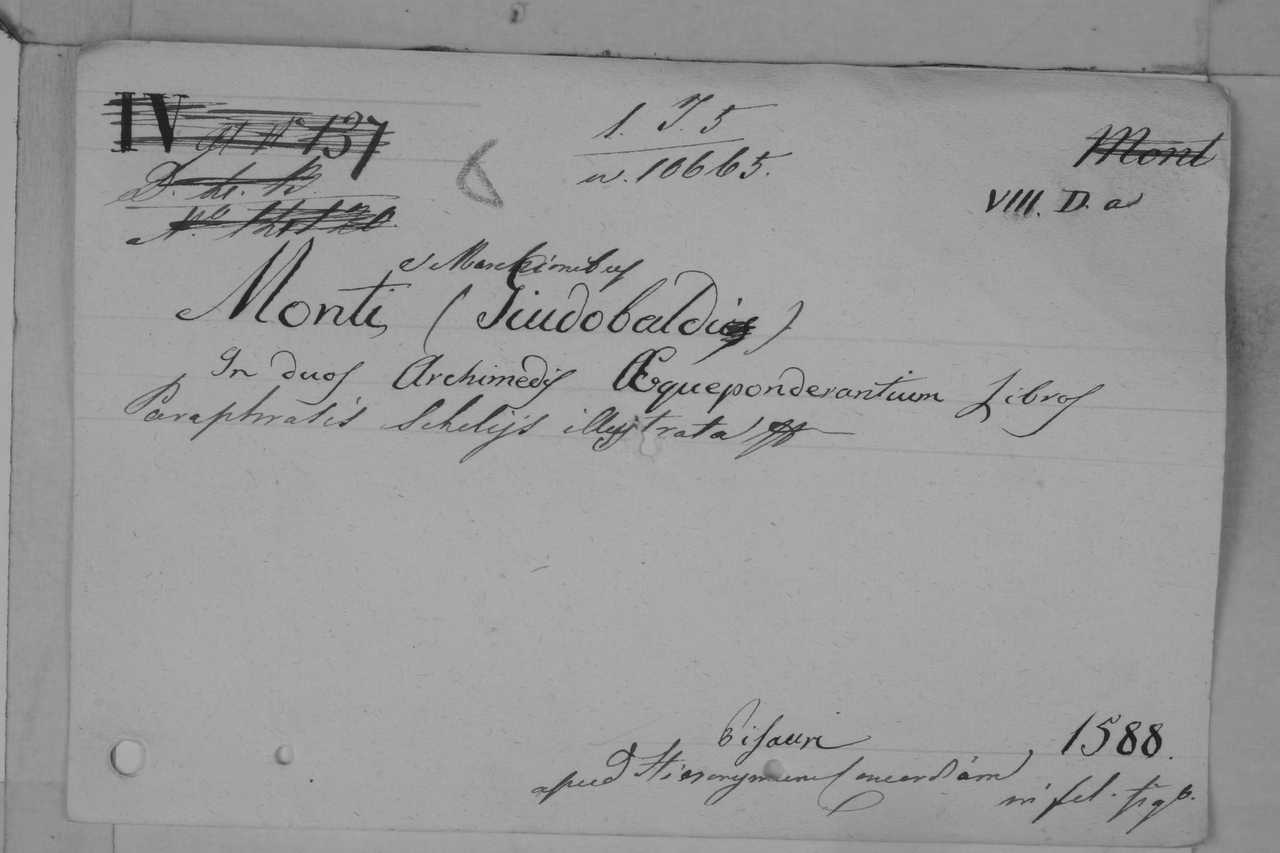 IV 137
1. J. 5
Mont
D. le. B.
n. 10665.
VIII. D. a
6
e Marchionibus
Monti (Guidobaldi)
In duos Archimedis Æqueponderantium Libros
Paraphrasis Scholijs illustrata
Pisauri 1588.
apud Hieronymum Concordiam,
in fol. fig.